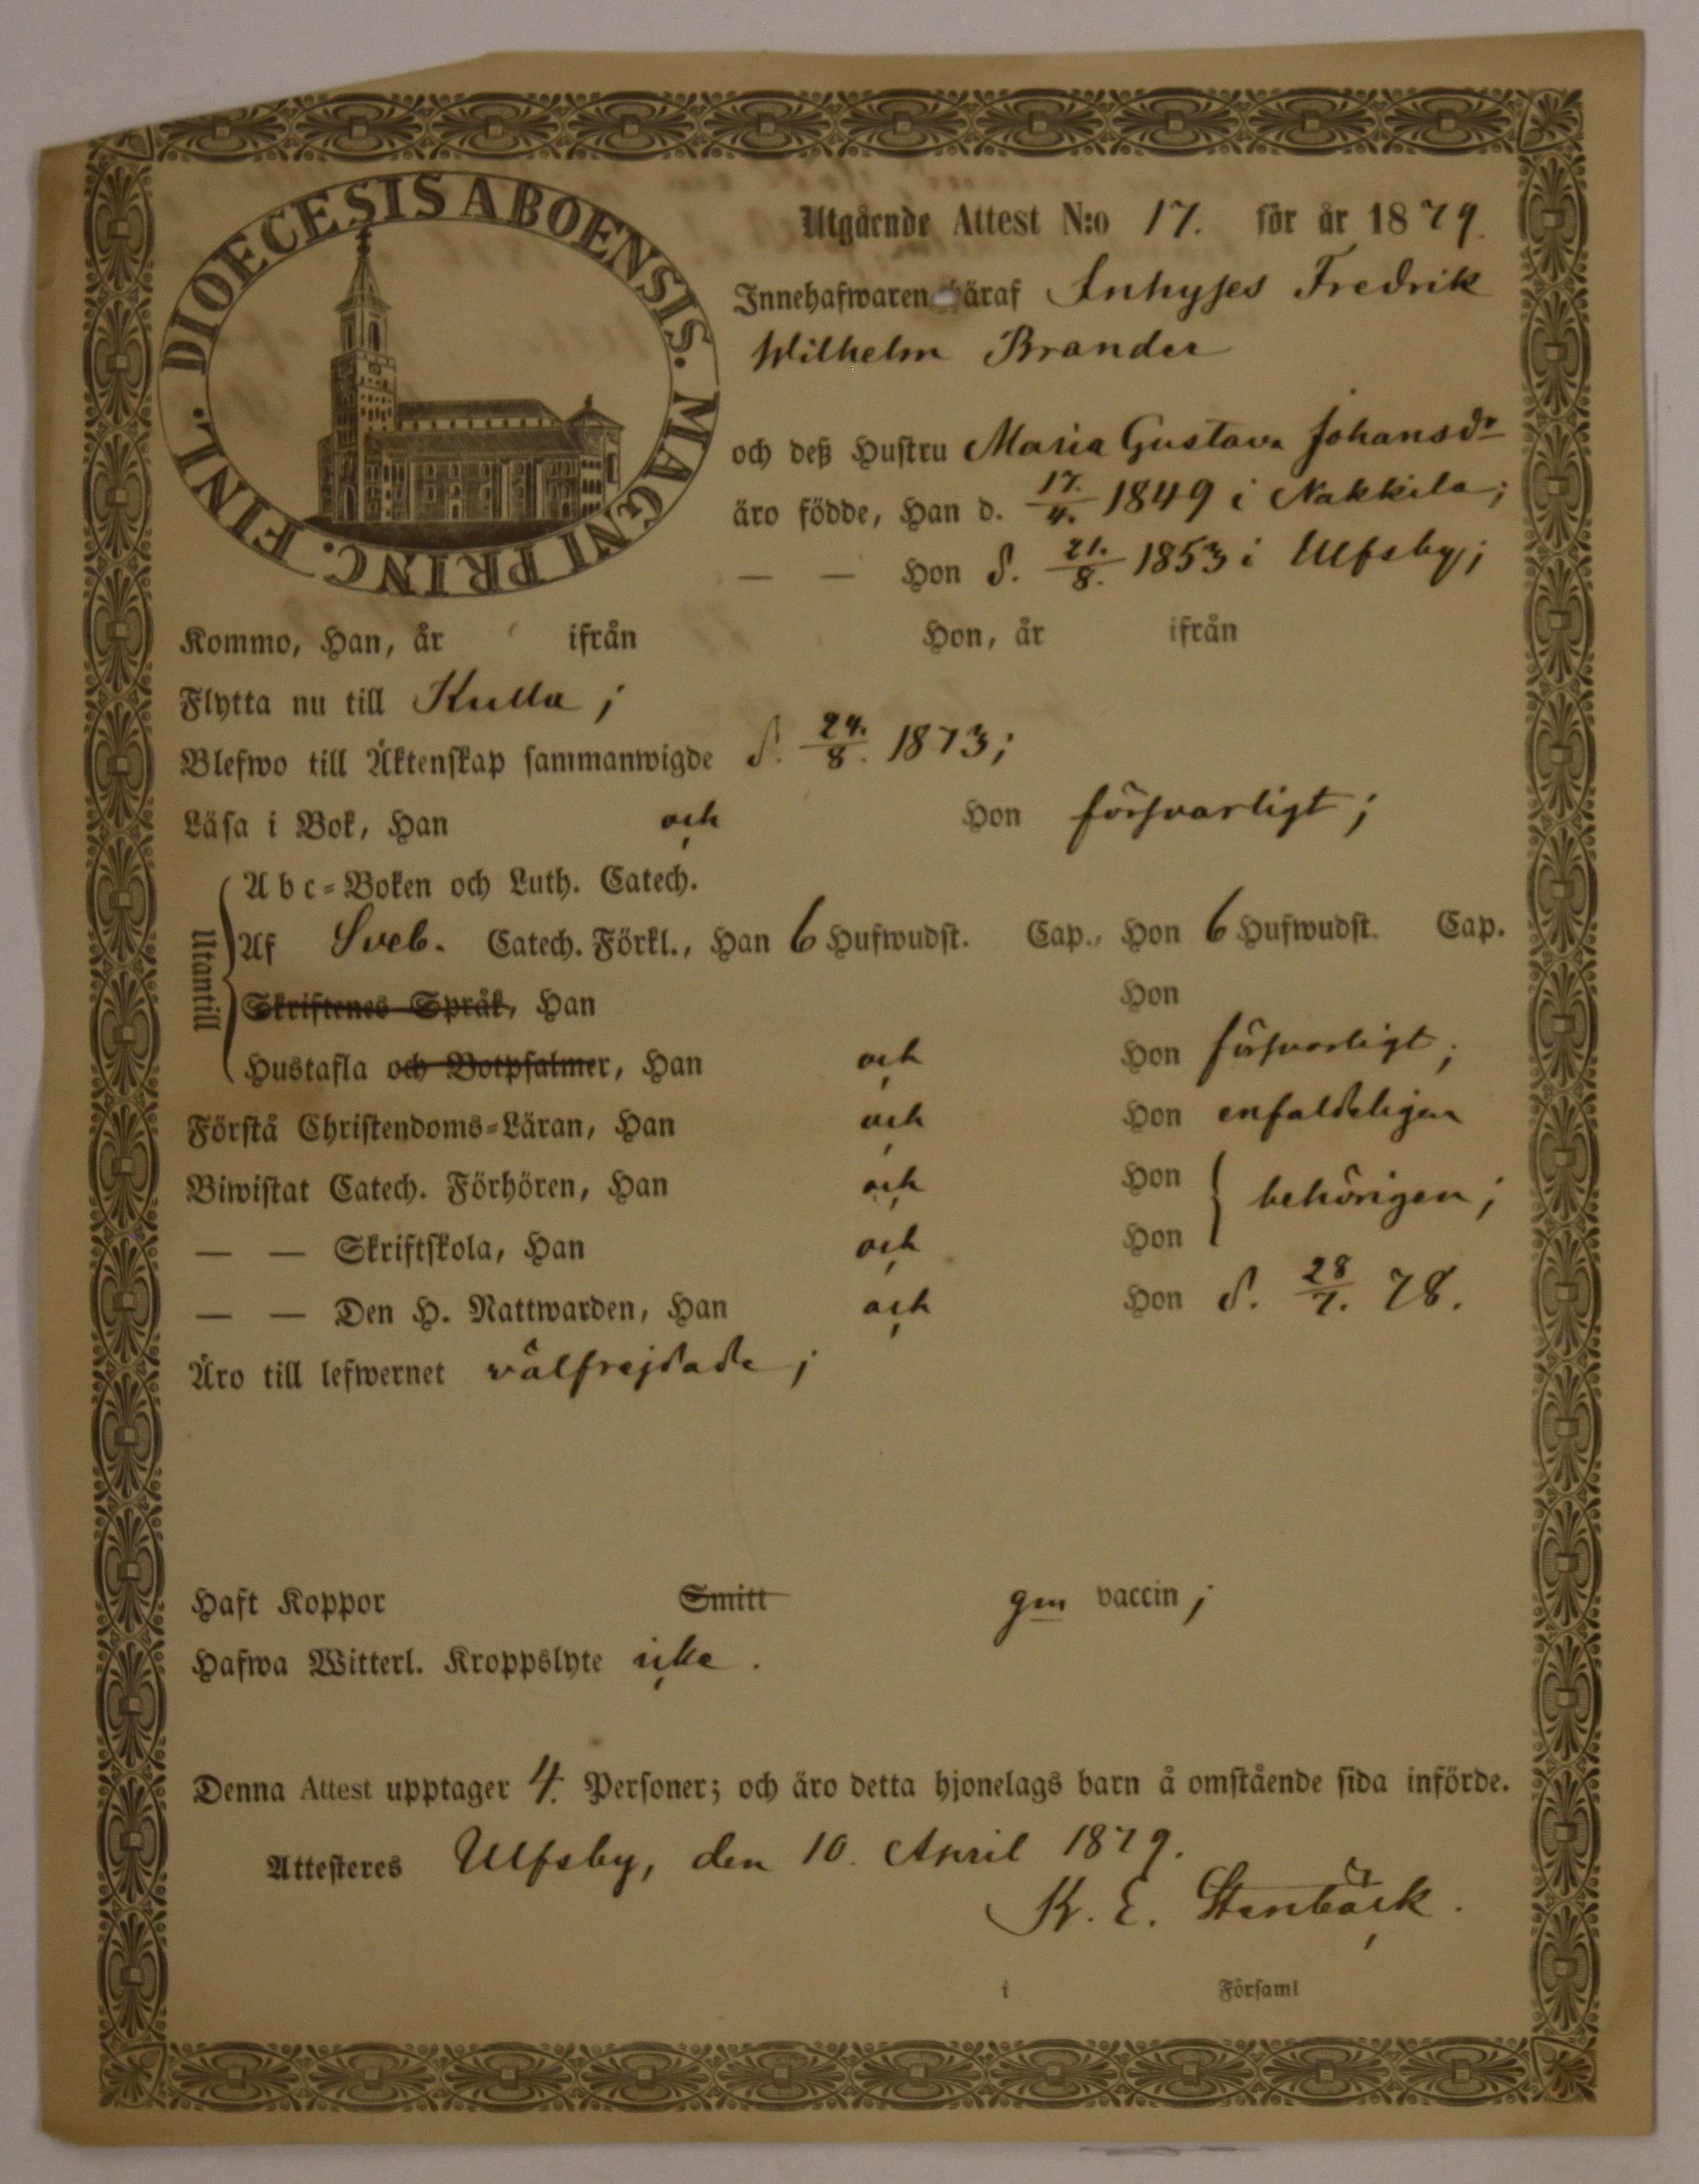 DIOECESIS ABOENSIS. MAGNI PRINC. FINL.
Utgående Attest N:o 17. för år 1879.
Innehafwaren häraf Inhyses Fredrik
Wilhelm Brander
och deß Hustru Maria Gustava Johansdr
äro födde, Han d. 17./4. 1849 i Nakkila;
— — Hon d. 21./8. 1853 i Ulfsby;
Kommo, Han, år ifrån Hon, år ifrån
Flytta nu till Kulla;
Blefwo till Äktenskap sammanwigde d. 24./8. 1873;
Läsa i Bok, Han och Hon försvarligt;
Utantill
Abc=Boken och Luth. Catech.
Af Sveb. Catech. Förkl., Han 6 Hufwudst. Cap., Hon 6 Hufwudst. Cap.
Skriftenes Språk, Han Hon
Hustafla och Botpsalmer, Han och Hon försvarligt;
Förstå Christendoms=Läran, Han och Hon enfaldeligen
Biwistat Catech. Förhören, Han och Hon behörigen;
— — Skriftskola, Han och Hon
— — Den H. Nattwarden, Han och Hon d. 28/7. 78.
Äro till lefwernet välfrejdade;
Haft Koppor Smitt gm vaccin;
Hafwa Witterl. Kroppslyte icke.
Denna Attest upptager 4. Personer; och äro detta hjonelags barn å omstående sida införde.
Attesteres Ulfsby, den 10. April 1879.
K. E. Stenbäck.
i Församl